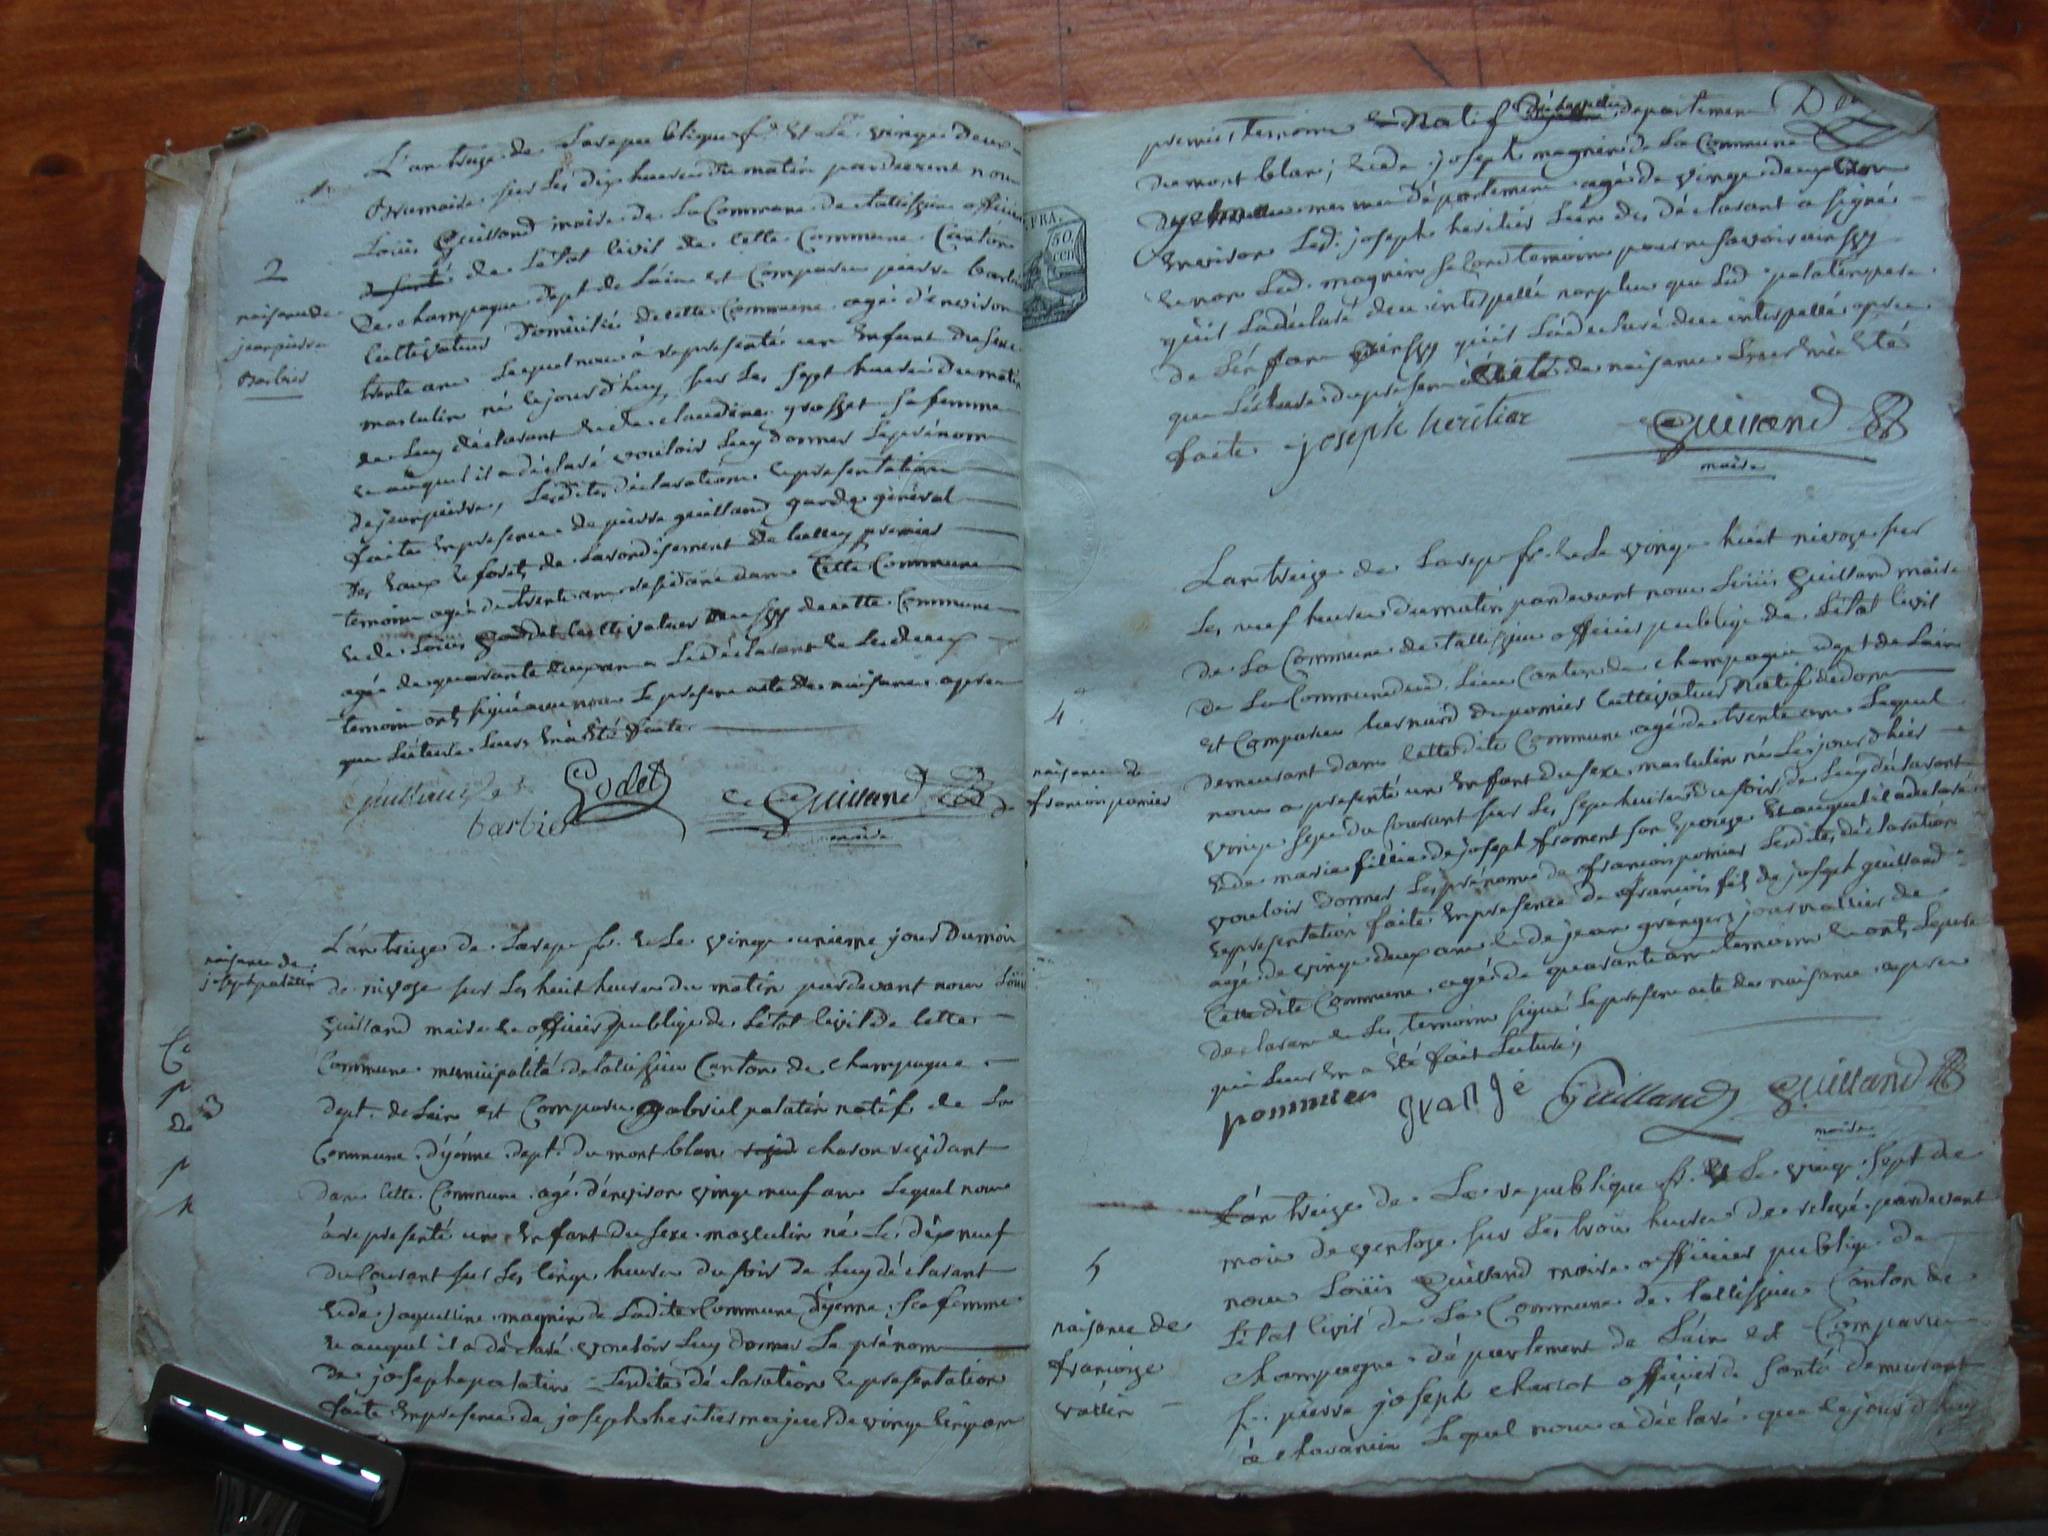 L'an treize de la republique fr. et le vingt deux
Brumaire sur les dix heures du matin par devant nous
Louis Guilland maire de la Commune de tallissieu officier
de l'état civil de cette Commune Canton
de champagne dept de l'ain est comparu pierre barbier
cultivateur domicilié de cette Commune agé d'environ
trente ans lequel nous à representé un enfant du sexe
masculin né cejourd'huy sur les sept heures du matin
de luy déclarant et de claudine grosset sa femme
et auquel il a déclaré vouloir luy donner le prénom
de jeanpierre, lesdites déclaration et presentation
faite en presence de pierre guilland garde général
des eaux et forets de l'arondisement de belley premier
temoin agé de trente ans residant dans cette Commune
et de Louis Goddet cultivateur aussy de cette Commune
agé de quarante deux ans le déclarant et les deux
temoins ont signé avec nous le present acte de naisance apres
que lecture leurs en a été faite.
2
naisance de
jeanpierre
Barbier
Godet
barbier
Guilland
maire
L'an treize de la rep fr. et le vingt unieme jour du mois
de nivose sur les huit heures du matin pardevant nous Louis
Guilland maire et officier publiq de l'état civil de cette
Commune municipalité de talissieu Canton de champagne
dept. de l'ain est comparu gabriel palatin natif de la
Commune d'yenne dept. du mont blanc charon residant
dans cette Commune agé d'environ vingt neuf ans lequel nous
à representé un enfant du sexe masculin né le dix neuf
du courant sur les cinq heures du soir de luy déclarant
et de jaqueline magnin de ladite Commune d'yenne sa femme
et auquel il a déclaré vouloir luy donner le prénom
de joseph palatin lesdite déclaration et presentation
faite en presence de joseph heritier majeur de vingt cinq ans
naisance de
joseph palatin
3
premier temoin natif departement
du mont blanc, et de joseph magnin de la Commune
d'yenne meme département agé de vingt deux ans
environ led. joseph heritier l'un des déclarant a signé
et non led. magnin second temoin pour ne savoir ainssy
qu'il l'a déclaré de ce interpellé non plus que led. palatin pere
de l'enfant ainssy qu'il l'a declaré de ce interpellé apres
que lecture du present acte de naisance leur en a été
faite joseph heritier
Guilland
maire
FRA.
50
cen
L'an treize de la rep fr. et le vingt huit nivose sur
les neuf heures du matin pardevant nous Louis Guilland maire
de la Commune de tallissieu officier publiq de l'état civil
de la Commune dud. lieu Canton de champagne dept de l'ain
est comparu bernard du pomier cultivateur natif dedom
demeurant dans cette dite Commune agé de trente ans lequel
nous a presenté un enfant du sexe masculin né le jour d'hier
vingt sept du courant sur les sept heures du soir, de luy déclarant
et de marie fillie de joseph froment son epouze et auquel il a declaré
vouloir donner les prénoms de françois pomier lesdites déclaration
et presentation faite en presence de françois fils de joseph guilland
agé de vingt deux ans et de jean granger journallier de
cette dite Commune, agé de quarante ans temoins et ont le pere
declarant et les temoins signé le present acte de naisance apres
que leurs en a été fait lecture,
4
naisance de
françois pomier
pommier grange Guilland Guilland
maire
L'an treize de la republique fr. et le vingt sept de
mois de ventose sur les trois heures de relevé pardevant
nous Louis Guilland maire officier publiq de
l'état civil de la Commune de tallissieu Canton de
champagne département de l'ain est comparu
pierre joseph charcot officier de santé demeurant
à lequel nous a déclaré que cejourd'huy
5
naisance de
françoise
vallin